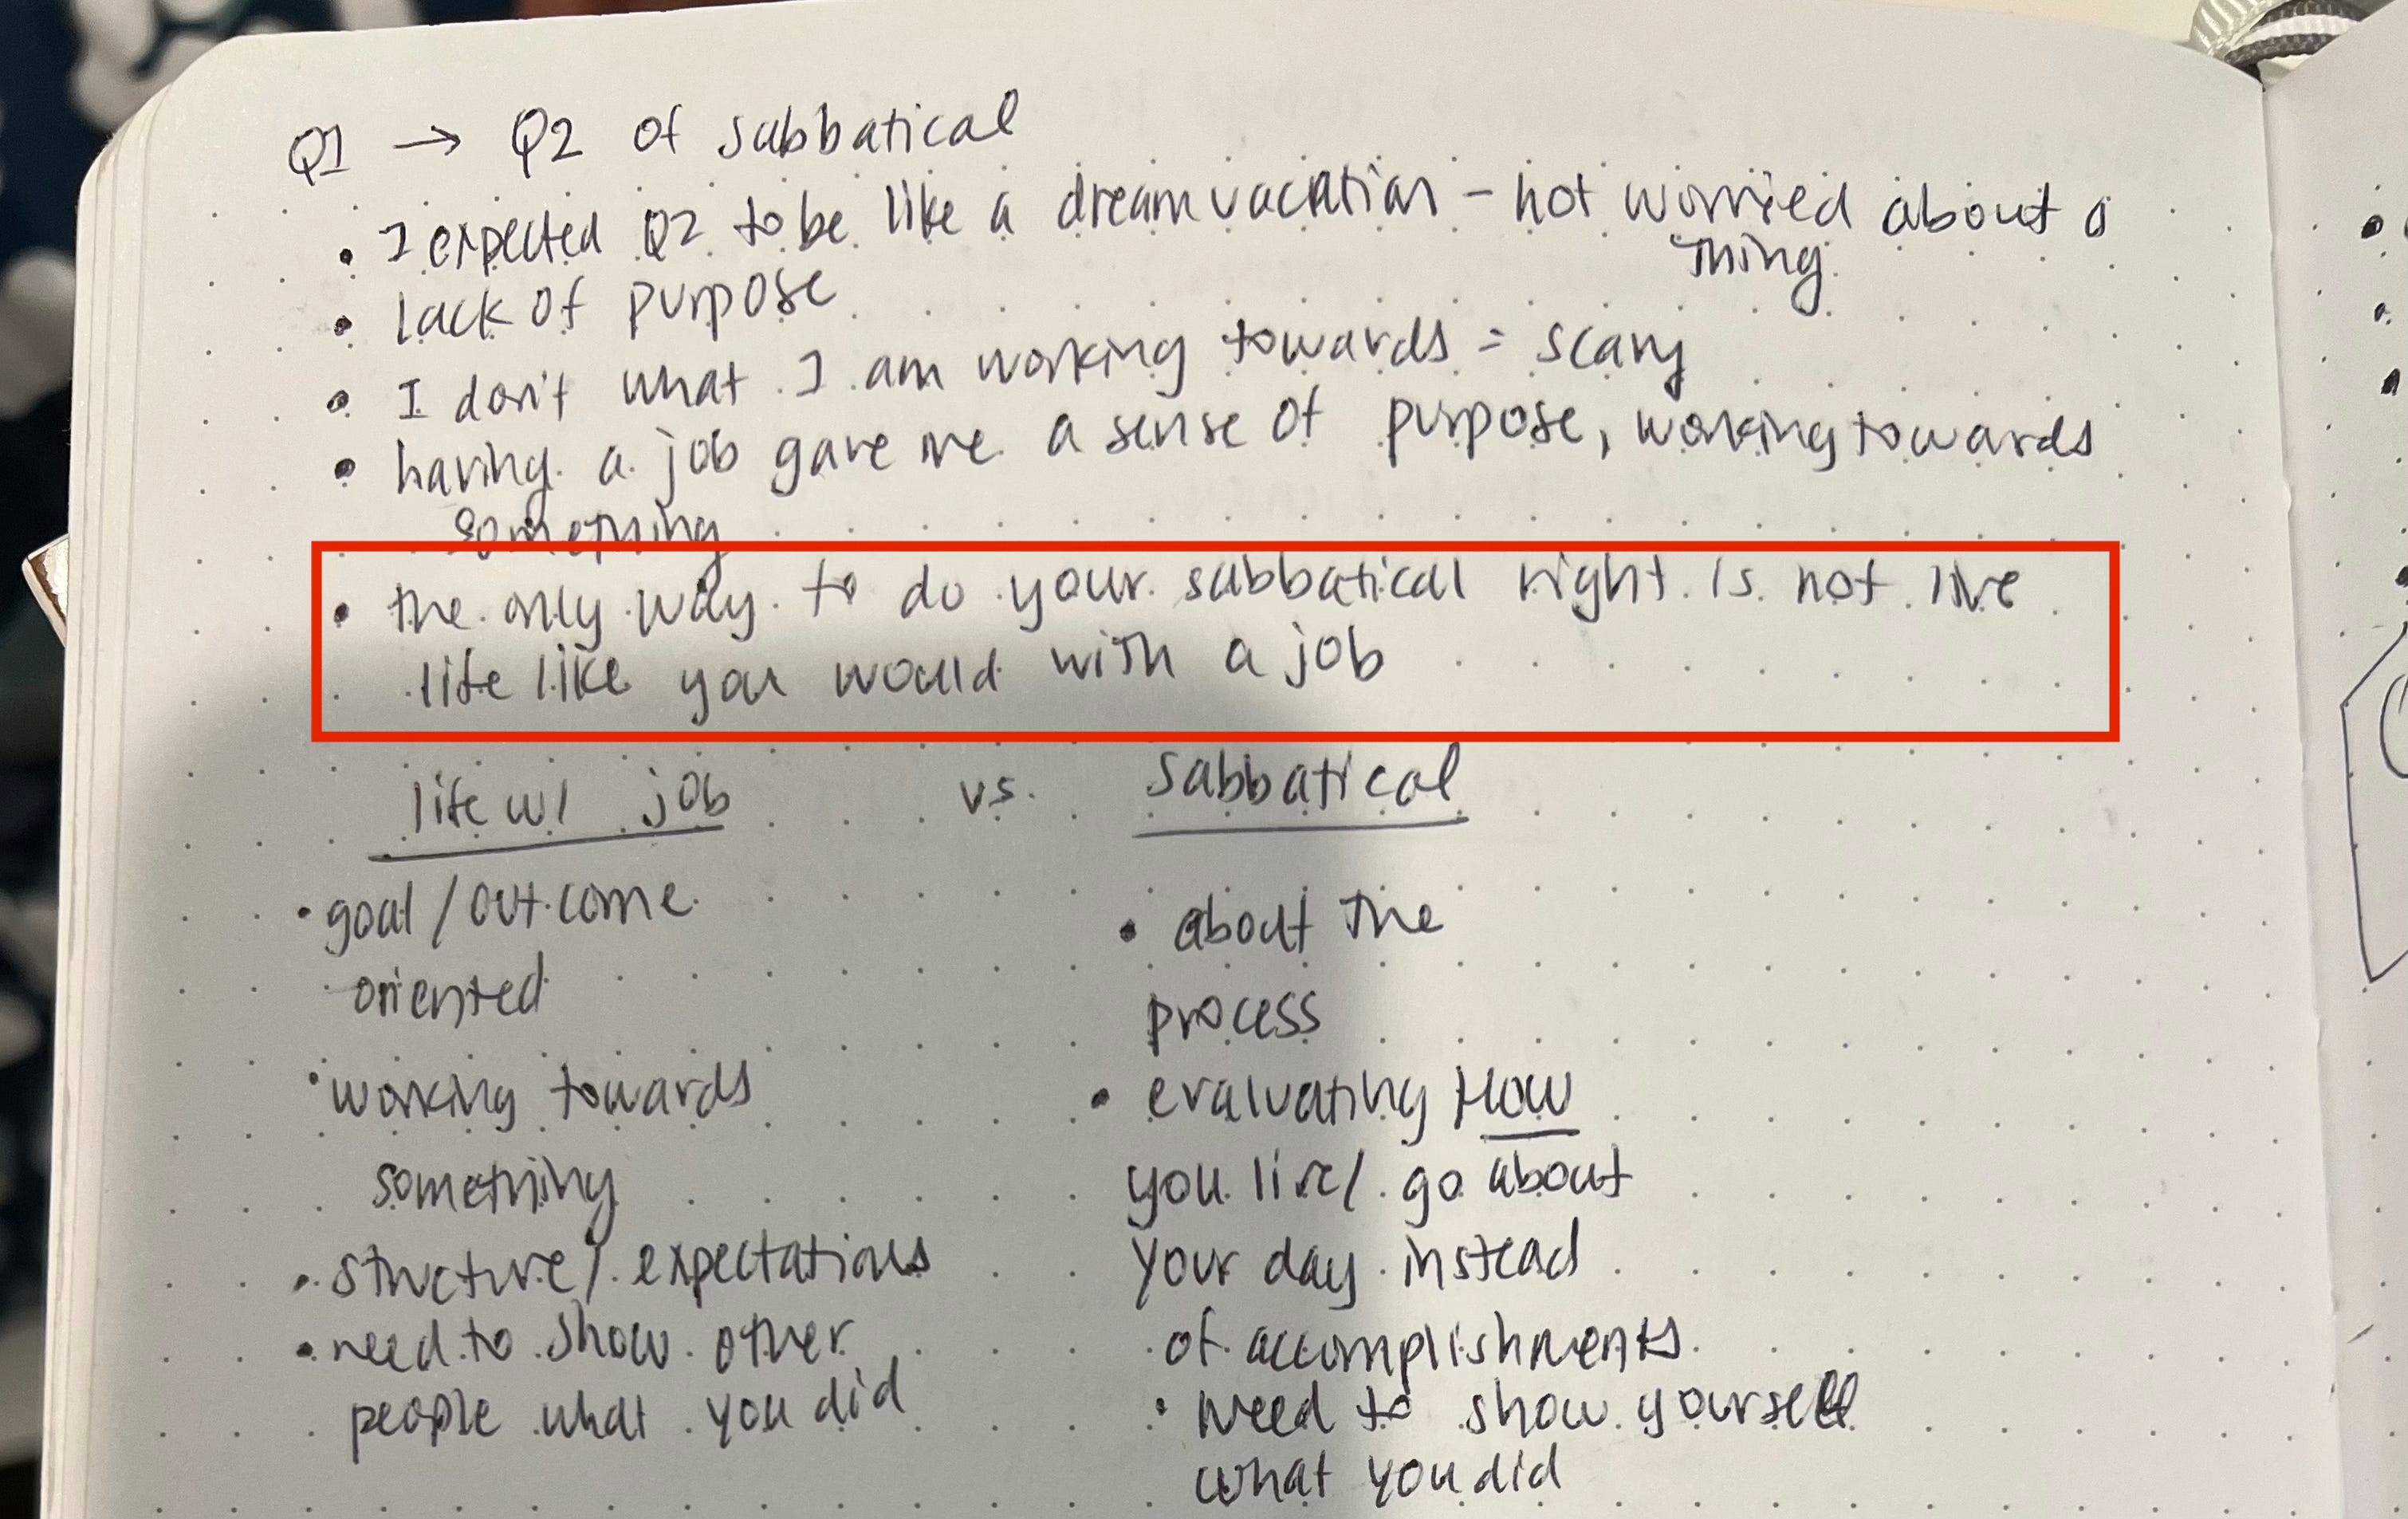 Q1 → Q2 of sabbatical
• I expected Q2 to be like a dream vacation - not worried about a
thing
• lack of purpose
• I don't what I am working towards = scary
• having a job gave me a sense of purpose, working towards
something
• the only way to do your sabbatical right is not live
life like you would with a job
life w/ job vs. sabbatical
• goal/outcome
oriented
• working towards
something
• structure/expectations
• need to show other
people what you did
• about the
process
• evaluating HOW
you live/go about
your day instead
of accomplishments
• need to show yourself
what you did